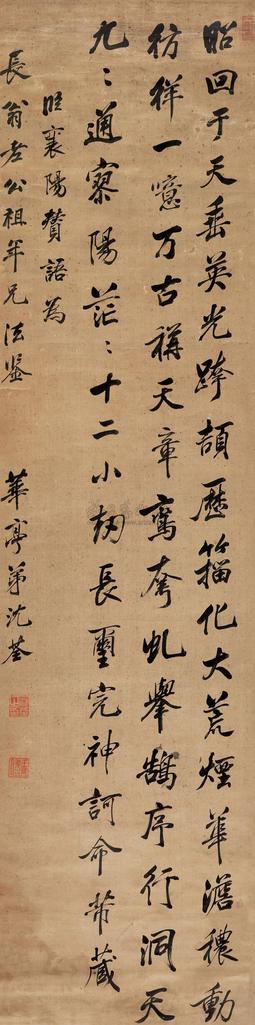 昭回于天垂英光跨頡歷籀化大荒煙華澹穠動
彷徉一噫万古稱天章鸞夸虬舉鵠序行洞天
九〻通寮陽茫〻十二小劫長璽完神訶命芾藏
臨襄陽贊語為
長翁老公祖年兄法鑒 華亭弟沈荃